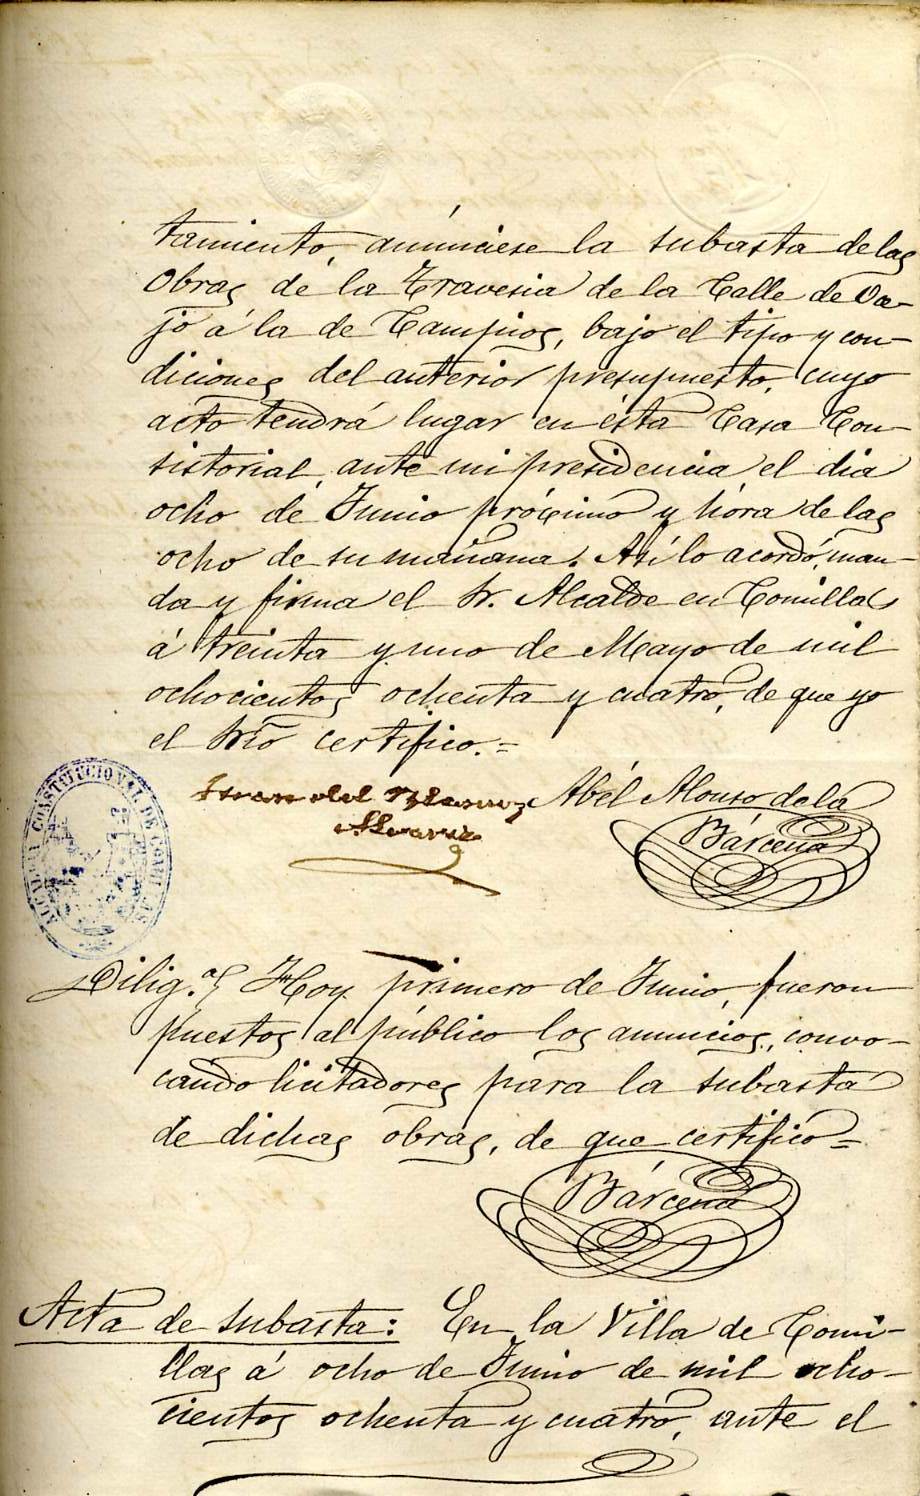 tamiento, anúnciese la subasta de las
Obras de la Travesia de la Calle de Oa-
jo á la de Campios, bajo el tipo y con-
diciones del anterior presupuesto, cuyo
acto tendrá lugar en ésta Casa Con-
sistorial, ante mi presidencia el dia
ocho de Junio próximo y hora de las
ocho de su mañana. Así lo acordó, man-
da y firma el Sr. Alcalde en Comillas
á treinta y uno de Mayo de mil
ochocientos ochenta y cuatro, de que yo
el Srio certifico.=
Abél Alonso de la
Bárcena
ALCALDIA CONSTITUCIONAL DE COMILLAS
Dilig.ª Hoy primero de Junio, fueron
puestos al público los anuncios, convo-
cando licitadores para la subasta
de dichas obras, de que certifico=
Bárcena
Acta de subasta: En la Villa de Comi-
llas á ocho de Junio de mil ocho-
cientos ochenta y cuatro, ante el